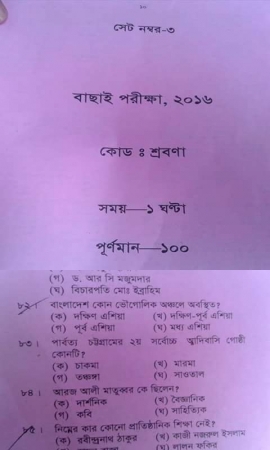 সেট নম্বর-৩
বাছাই পরীক্ষা, ২০১৬
কোড ঃ শ্রবণা
সময়—১ ঘণ্টা
পূর্ণমান—১০০
(গ) ড. আর সি মজুমদার
(ঘ) বিচারপতি মোঃ ইব্রাহিম
৮২। বাংলাদেশ কোন ভৌগোলিক অঞ্চলে অবস্থিত?
(ক) দক্ষিণ এশিয়া (খ) দক্ষিণ-পূর্ব এশিয়া
(গ) পূর্ব এশিয়া (ঘ) মধ্য এশিয়া
৮৩। পার্বত্য চট্টগ্রামের ২য় সর্বোচ্চ আদিবাসি গোষ্ঠী
কোনটি?
(ক) চাকমা (খ) মারমা
(গ) তঞ্চঙ্গা (ঘ) সাওতাল
৮৪। আরজ আলী মাতুব্বার কে ছিলেন?
(ক) দার্শনিক (খ) বৈজ্ঞানিক
(গ) কবি (ঘ) সাহিত্যিক
৮৫। নিম্নের কার কোনো প্রাতিষ্ঠানিক শিক্ষা নেই?
(ক) রবীন্দ্রনাথ ঠাকুর (খ) কাজী নজরুল ইসলাম
(ঘ) লালন ফকির